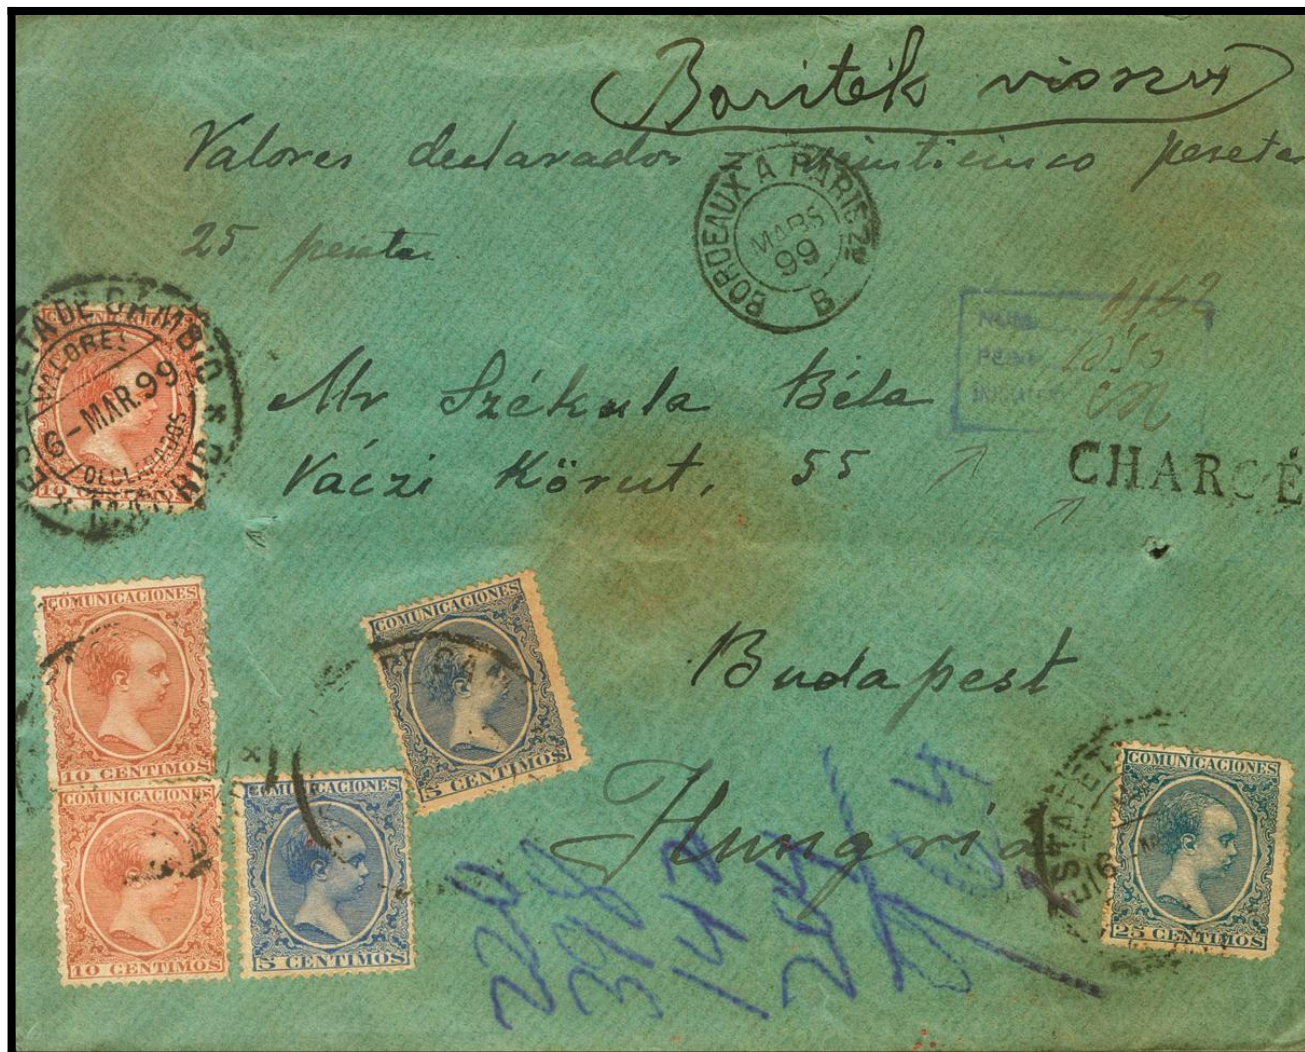 Boriték vissza
Valores declarados = veinticinco pesetas
25 pesetas
BORDEAUX A PARIS 2º
MARS
99
B
ESTAFETA DE CAMBIO
VALORES
6 - MAR. 99
DECLARADOS
10 CENTIMOS
NUM. 1162
PESO
CHARGÉ
Mr Székula Béla
Váczi Körut, 55
Budapest
Hungría
COMUNICACIONES
10 CENTIMOS
COMUNICACIONES
10 CENTIMOS
COMUNICACIONES
5 CENTIMOS
COMUNICACIONES
5 CENTIMOS
COMUNICACIONES
25 CENTIMOS
ESTAFETA